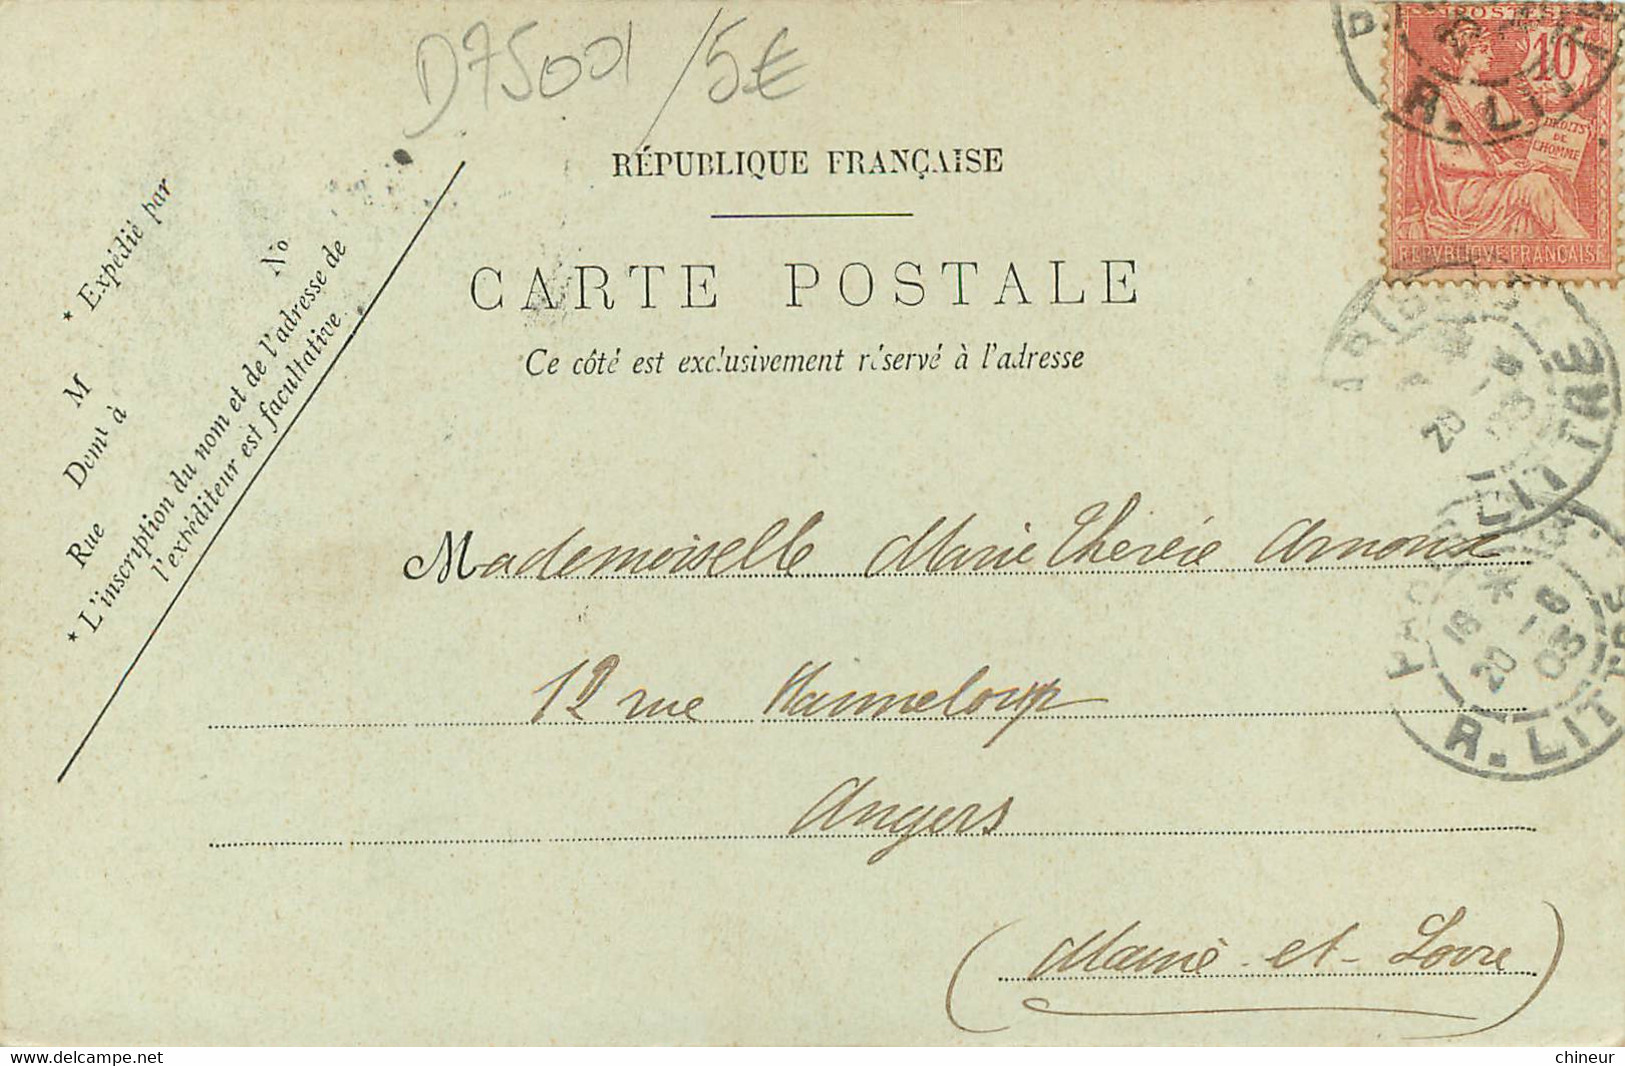 D75001 /5€
POSTES
10
DROITS
DE
L'HOMME
REPVBLIQVE FRANÇAISE
R. LIT
RÉPUBLIQUE FRANÇAISE
CARTE POSTALE
Ce côté est exclusivement réservé à l'adresse
* Expédié par
M
Demt à
Rue
No
* L'inscription du nom et de l'adresse de
l'expéditeur est facultative.
20
LITTRE
Mademoiselle Marie Thérèse Arnoux
12 rue Hanneloup
Angers
(Maine-et-Loire)
18 *
20 -6
03
R. LITTRE
delcampe.net
chineur